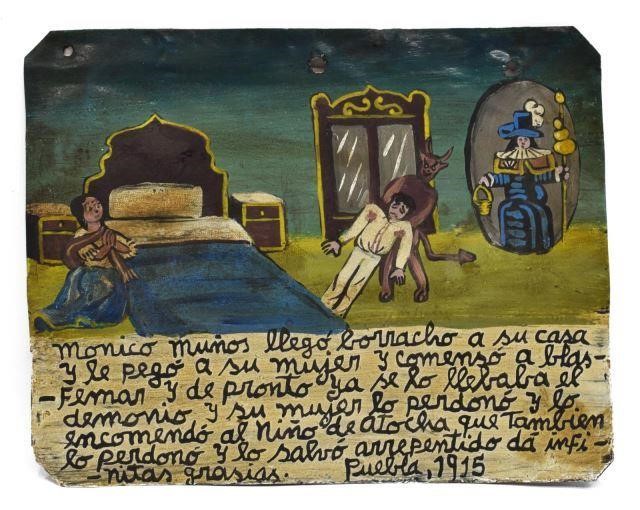 Monico Muños llegó borracho a su casa
y le pegó a su mujer y comensó a blas-
-Femar y de pronto ya se lo llebaba el
demonio y su mujer lo perdonó y lo
encomendó al Niño de Atocha que Tambien
lo perdonó y lo salvó arrepentido dá infi-
-nitas grasias. Puebla, 1915